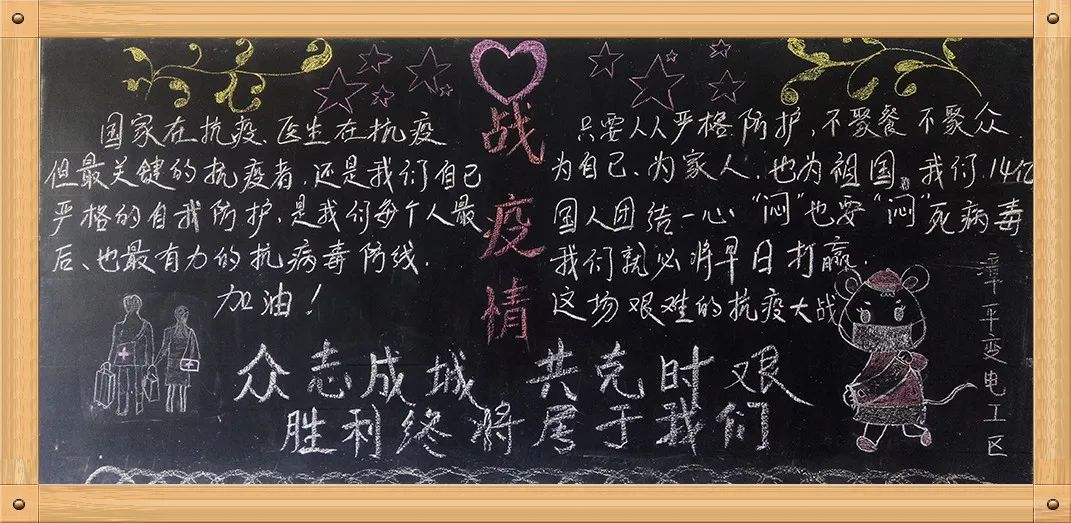 战疫情
国家在抗疫、医生在抗疫
但最关键的抗疫者,还是我们自己
严格的自我防护,是我们每个人最
后、也最有力的抗病毒防线.
加油!
只要人人严格防护,不聚餐 不聚众.
为自己、为家人,也为祖国。我们14亿
国人团结一心“闷”也要“闷”死病毒
我们就必将早日打赢.
这场艰难的抗疫大战
众志成城 共克时艰
胜利终将属于我们
漳平变电工区